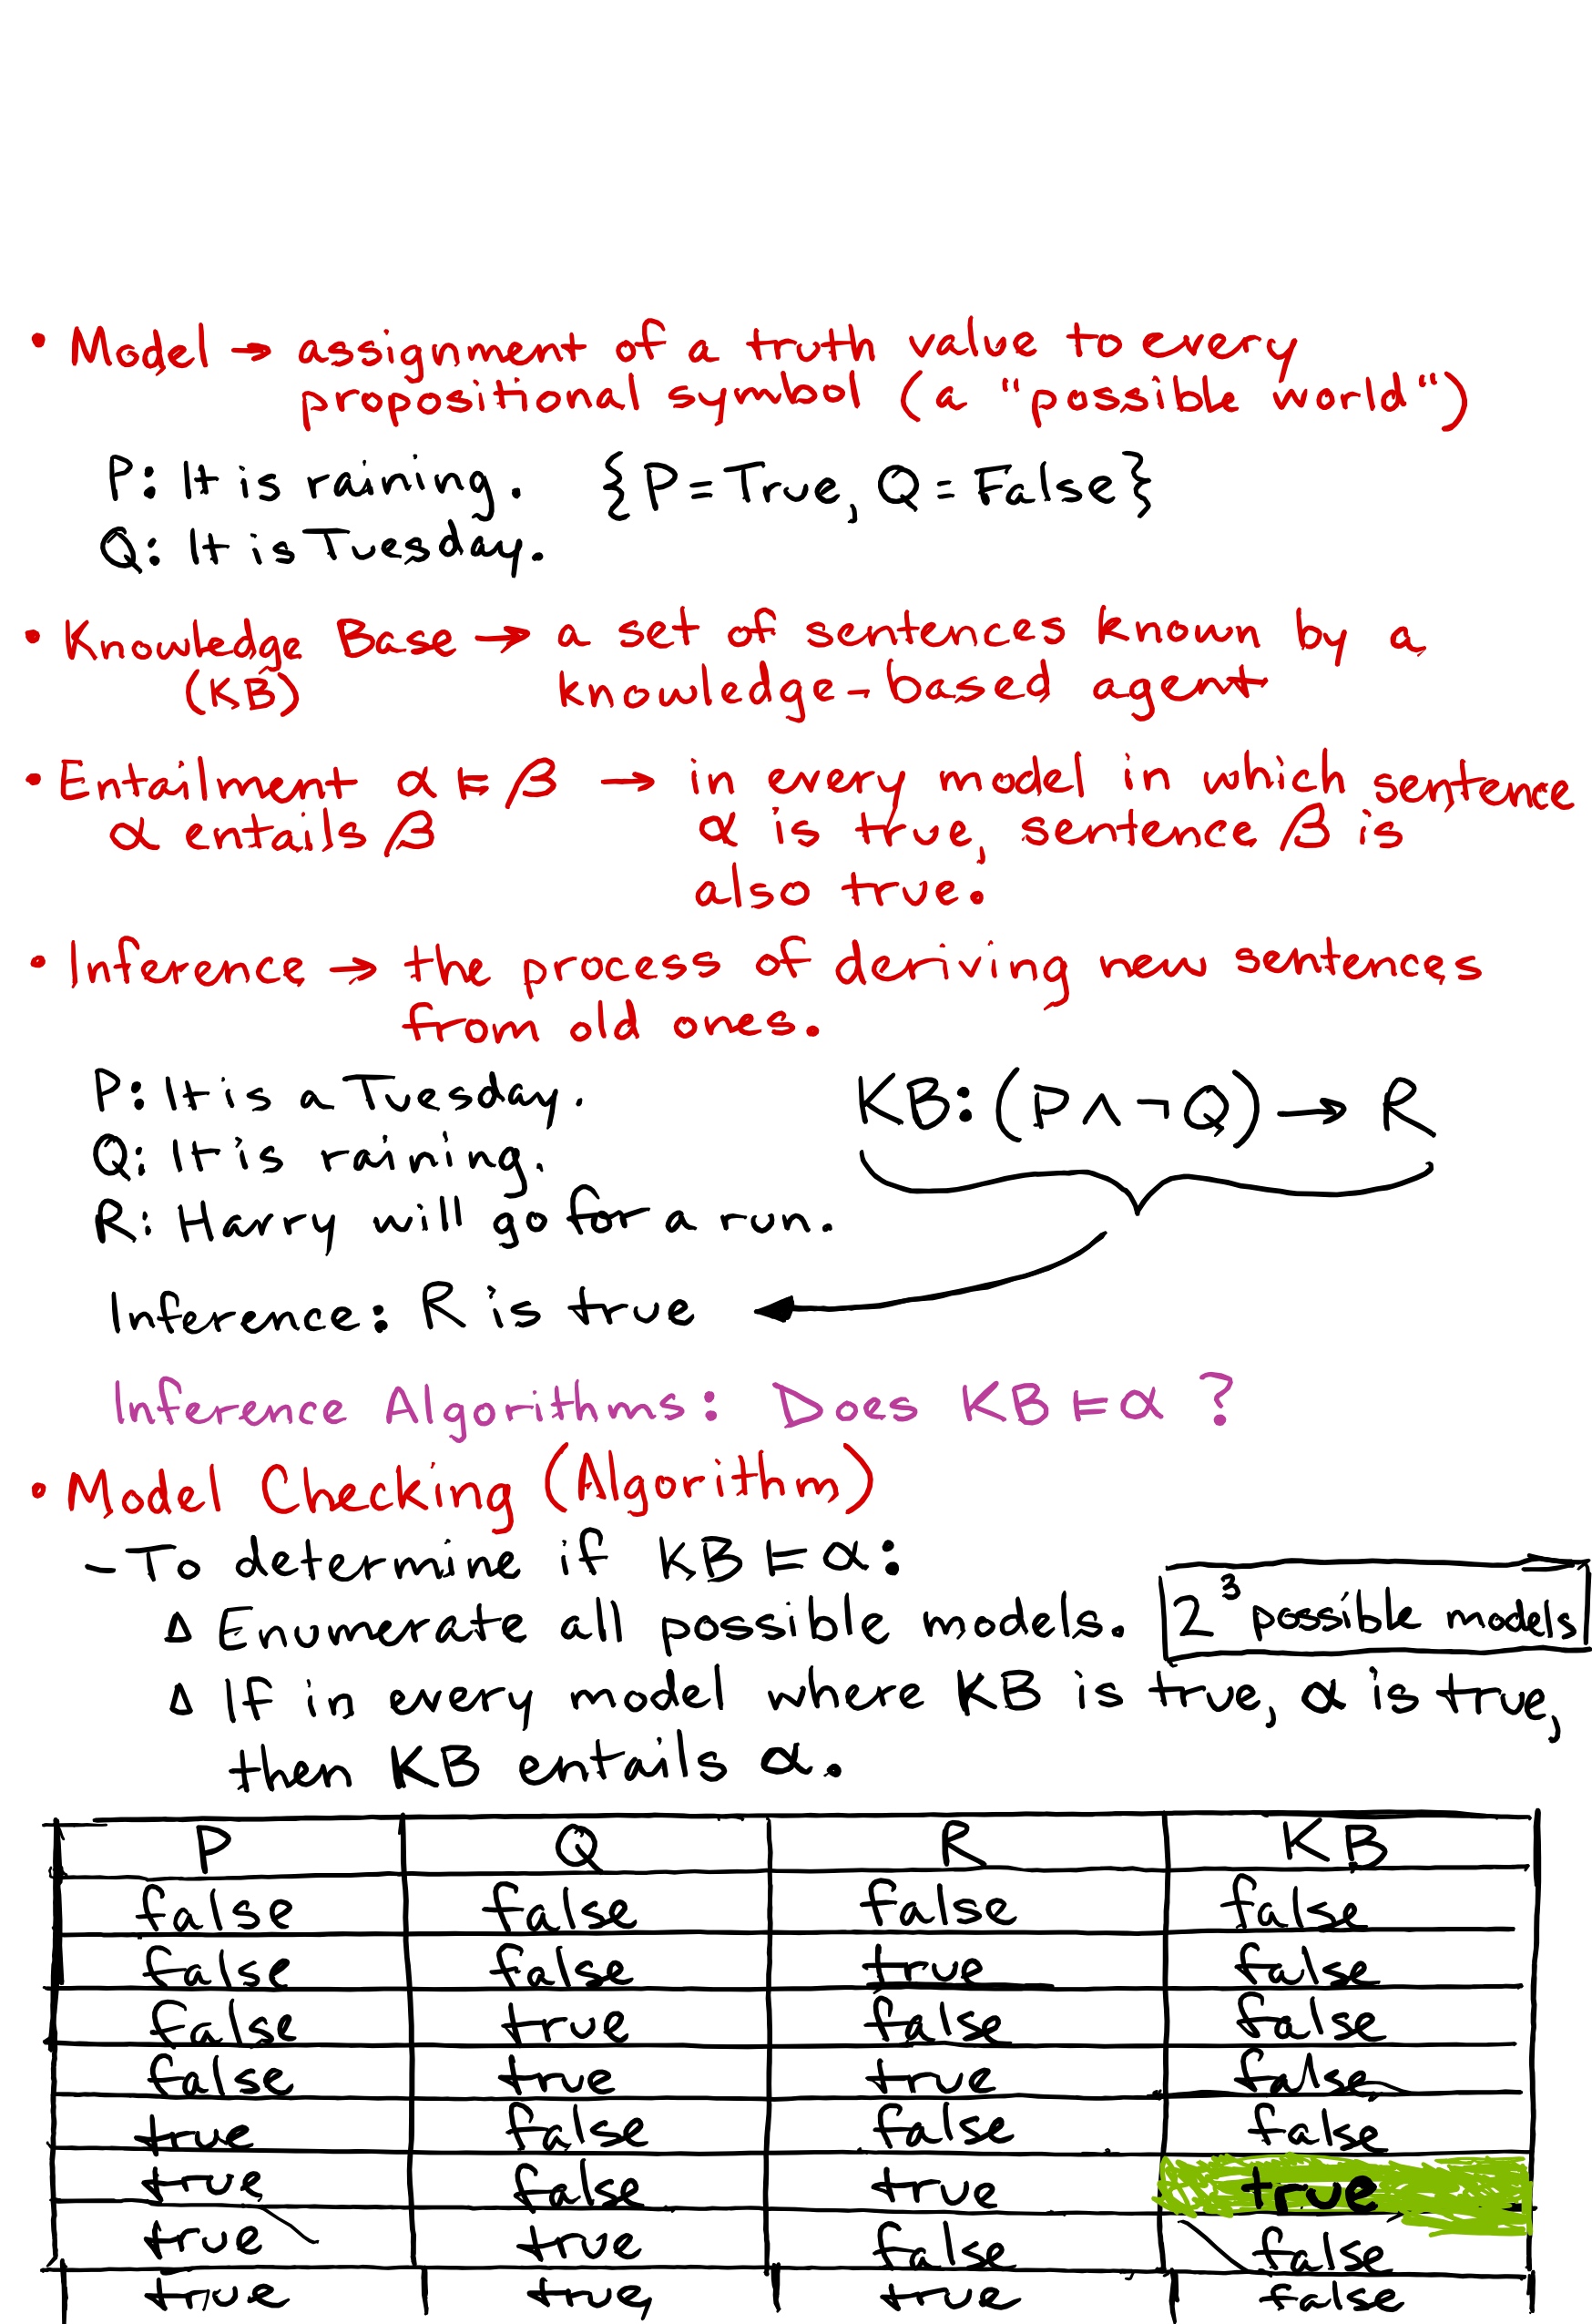 • Model → assignment of a truth value to every
propositional symbol (a "possible world")
P: It is raining. {P = True, Q = False}
Q: It is Tuesday.
• Knowledge Base → a set of sentences known by a
(KB) knowledge-based agent
• Entailment α ⊨ β → in every model in which sentence
α entails β α is true, sentence β is
also true.
• Inference → the process of deriving new sentences
from old ones.
P: It is a Tuesday. KB: (P ∧ ¬Q) → R
Q: It is raining.
R: Harry will go for a run.
Inference: R is true
Inference Algorithms: Does KB ⊨ α ?
• Model Checking (Algorithm)
- To determine if KB ⊨ α:
Δ Enumerate all possible models. 2³ possible models
Δ If in every model where KB is true, α is true,
then KB entails α.
P Q R KB
false false false false
false false true false
false true false false
false true true false
true false false false
true false true true
true true false false
true true true false